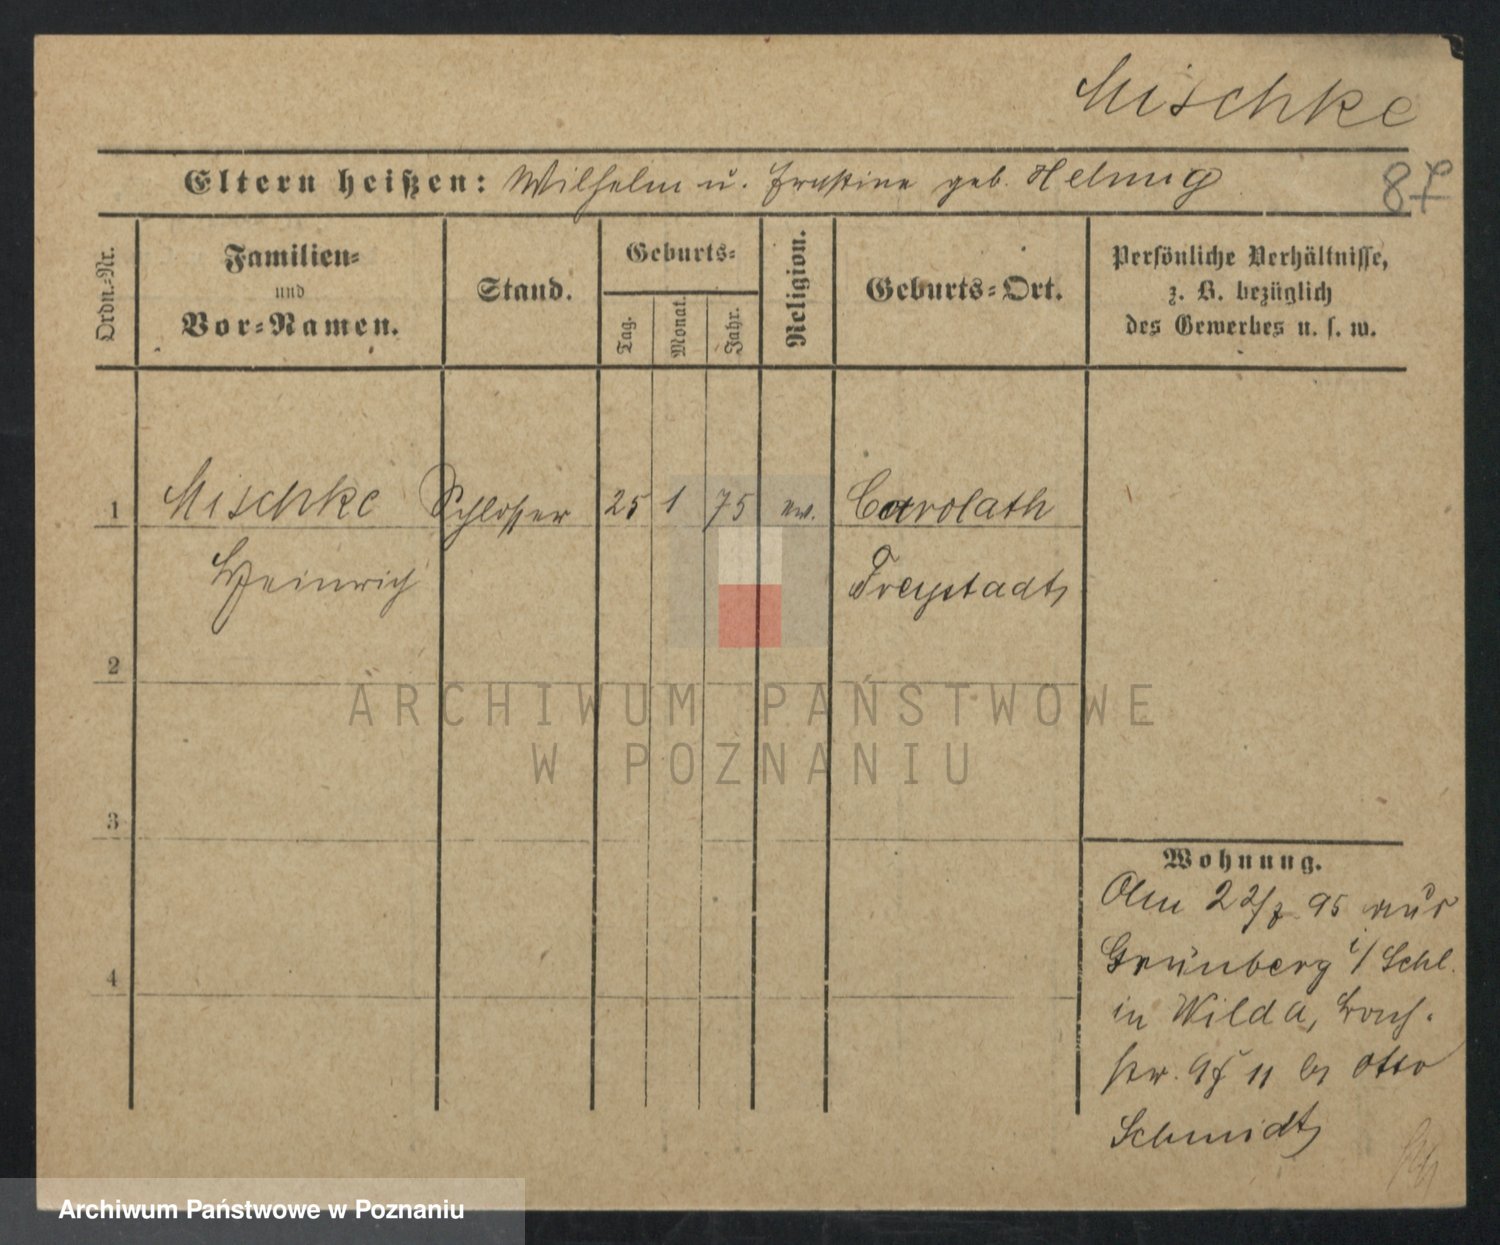 Mischke
Eltern heißen: Wilhelm u. Ernstine geb. Helmig
87
Ordn.-Nr.
Familien-
und
Vor-Namen.
Stand.
Geburts-
Tag.
Monat.
Jahr.
Religion.
Geburts-Ort.
Persönliche Verhältnisse,
z. B. bezüglich
des Gewerbes u. s. w.
1 Mischke Schlosser 25 1 75 ev. Carolath
Heinrich Freystadt
2
ARCHIWUM PAŃSTWOWE
W POZNANIU
3
Wohnung.
Am 22/7 95 aus
Grünberg i/ Schl.
in Wilda,
str. 11 bei Otto
Schmidt
4
Archiwum Państwowe w Poznaniu